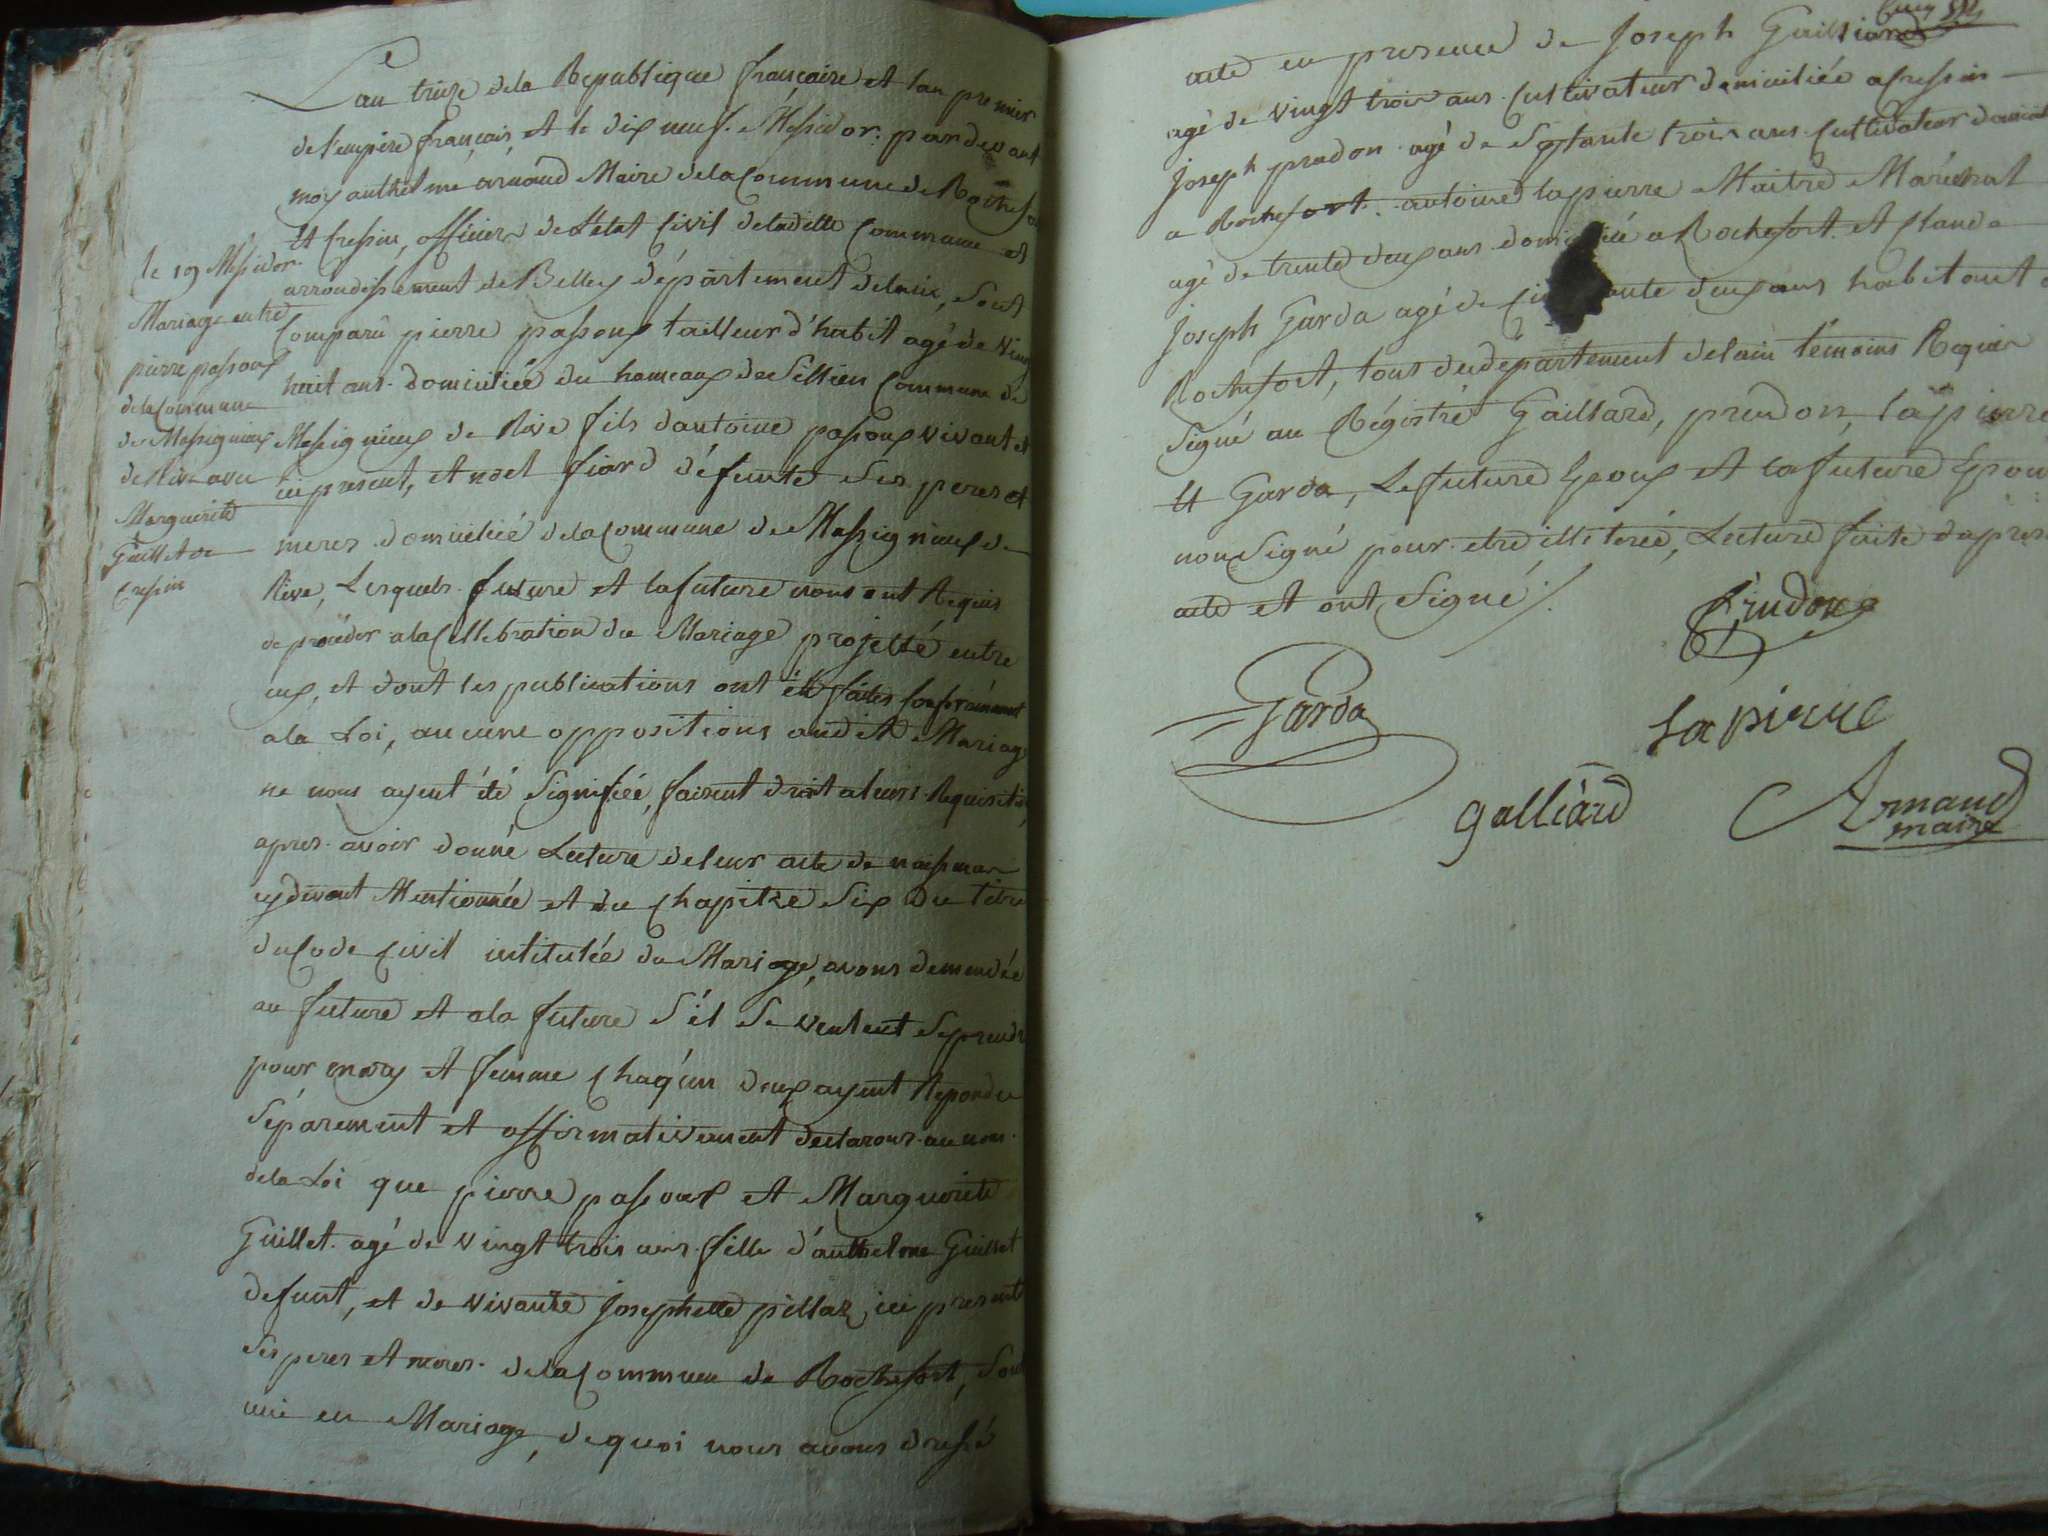 L'an treize de la Republique française et lan premier
de l'empire français, et le dix neuf Messidor. par devant
moy anthelme arnaud Maire de la Commune de Rochefort
Et Cressin, officier de l'etat Civil de ladille Commune et
arrondissement de Belley département delain, Sont
Comparû pierre passoux tailleur d'habit agé de vingt
huit ans. domiciliée du hameaux de Sillien Commune de
Massignieux de Rive fils dantoine passoux vivant et
ici present, et noel fiard défunte Ses peres et
meres domiciliée de la Commune de Massignieux de
Rive, Lesquels future et la future nous ont Requis
de procéder a la Cellebration du Mariage projetté entre
eux, et dont les publications ont été faites Conformément
a la Loi, aucune oppositions audit Mariage
ne nous ayent été Signifiée, faisent droit a leurs Requisition,
apres avoir donné Lecture de leur acte de naissance
cy devant Mentionnée et du Chapitre Six du titre
du Code Civil intitulée du Mariage, avons demendée
au future et a la future S'il Se veulent Se prendre
pour mary et femme Chaq'un deux ayent Repondu
Séparement et affirmativement declarons au nom
de la Loi que pierre passoux et Marguerite
Guillet agé de vingt trois ans fille d'anthelme Guillet
defunt, et de vivante Josephette pillaz, ici present
Ses peres et meres de la Commune de Rochefort, Sont
unie en Mariage, de quoi nous avons dressé
le 19 Messidor
Mariage entre
pierre passoux
de la Commune
de Massignieux
de Rive avec
Marguerite
Guillet de
Cressin
acte en presence de Joseph Gaillard
agé de vingt trois ans Cultivateur domiciliée a Cressin
Joseph prudon agé de Septante trois ans Cultivateur domicilié
a Rochefort. antoine lapierre Maitre Maréchal
agé de trente deux ans domiciliée a Rochefort. Et Claude
Joseph Garda agé de Cinquante deux ans habitant a
Rochefort, tous du departement delain témoins Requier
Signé au Régistré Gaillard, prudon, lapierre
Et Garda, Le future Epoux et la future Epouse
non Signé pour etre illiterée, Lecture faite dapres
acte et ont Signé
Prudon
Garda
lapierre
galliard
Arnaud
maire